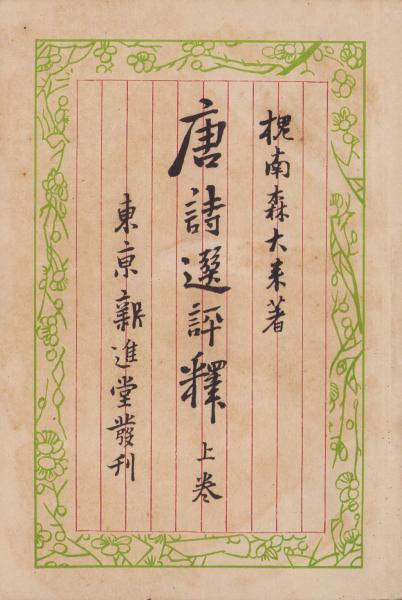 槐南森大来著
唐詩選評釋 上卷
東京新進堂發刊